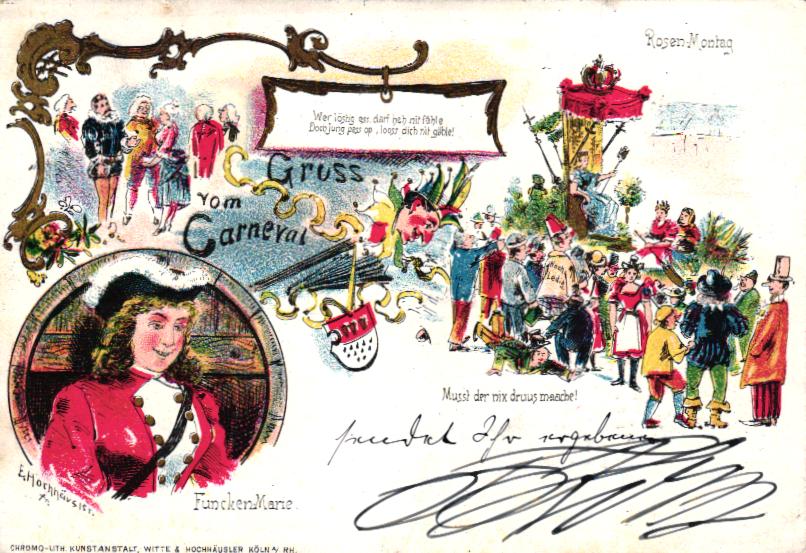 Rosen-Montag
Wer löstig ess, darf noh nit fühle
Doch jung pass op, looss dich nit göhle!
Gruss
vom
Carneval
Musst der nix druus maache!
sendet Ihr ergebener
E. Hochhäusler.
Funcken-Marie.
CHROMO-LITH. KUNSTANSTALT, WITTE & HOCHHÄUSLER KÖLN a/ RH.